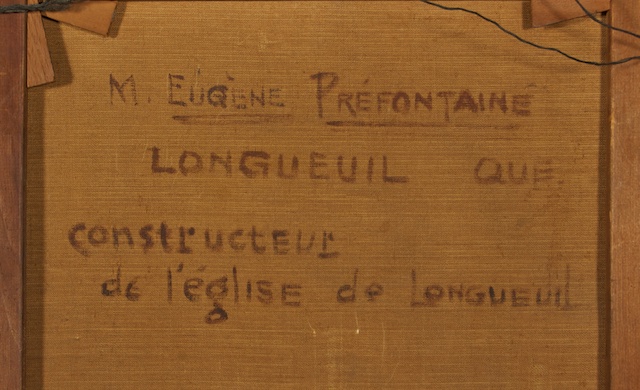 M. EUGÈNE PRÉFONTAINE
LONGUEUIL QUE.
constructEUR
de l'églISE de LONGUEUIL